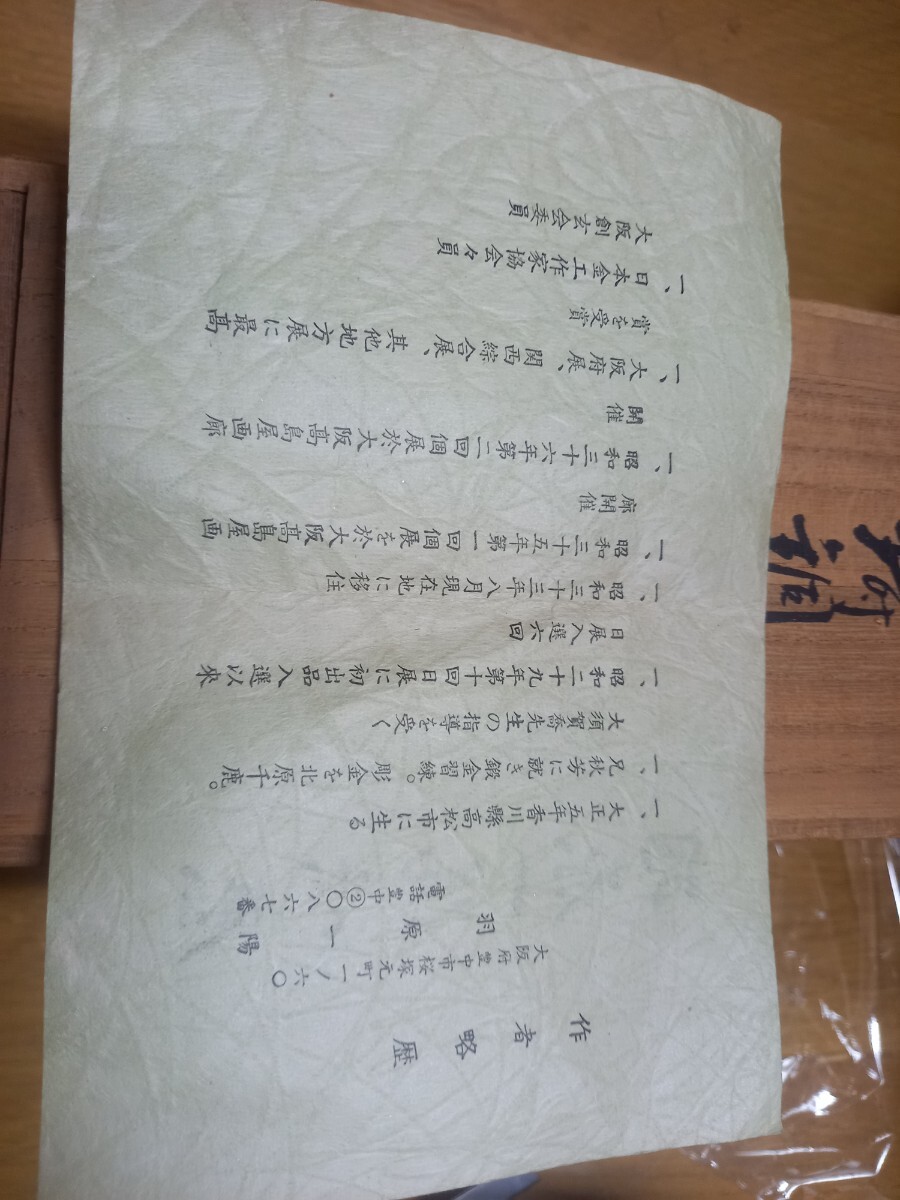 作者略歴
大阪府豊中市桜塚元町一ノ六〇
羽原一陽
電話豊中②〇八六七番
一、大正五年香川縣高松市に生る
一、兄秋芳に就き鍛金習練。彫金を北原千鹿。
大須賀喬先生の指導を受く
一、昭和二十九年第十回日展に初出品入選以来
日展入選六回
一、昭和三十三年八月現在地に移住
一、昭和三十五年第一回個展を於大阪高島屋画
廊開催
一、昭和三十六年第二回個展於大阪高島屋画廊
開催
一、大阪府展、関西綜合展、其他地方展に最高
賞を受賞
一、日本金工作家協会々員
大阪創玄会委員